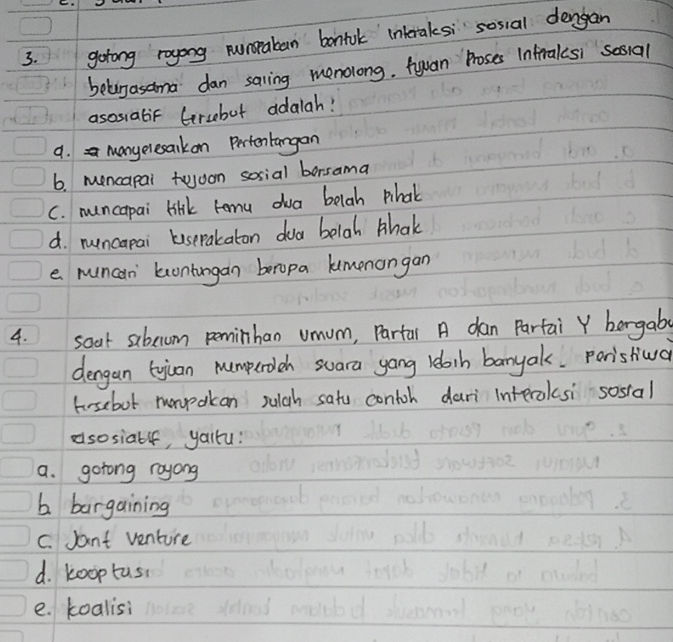 3. gotong royong merupakan bentuk interaksi sosial dengan
bekerjasama dan saling menolong. tujuan proses Interaksi sosial
asosiatif tersebut adalah:
a. menyelesaikan Pertentangan
b. mencapai tujuan sosial bersama
c. mencapai titik temu dua belah pihak
d. mencapai kesepakatan dua belah pihak
e. mencari keuntungan berupa kemenangan
4. saat sebelum pemilihan umum, Partai A dan Partai Y bergabu
dengan tujuan memperoleh suara yang lebih banyak. Peristiwa
tersebut merupakan sulah satu contoh dari Interaksi sosial
asosiatif, yaitu:
a. gotong royong
b. bargaining
c. Joint venture
d. kooptasi
e. koalisi